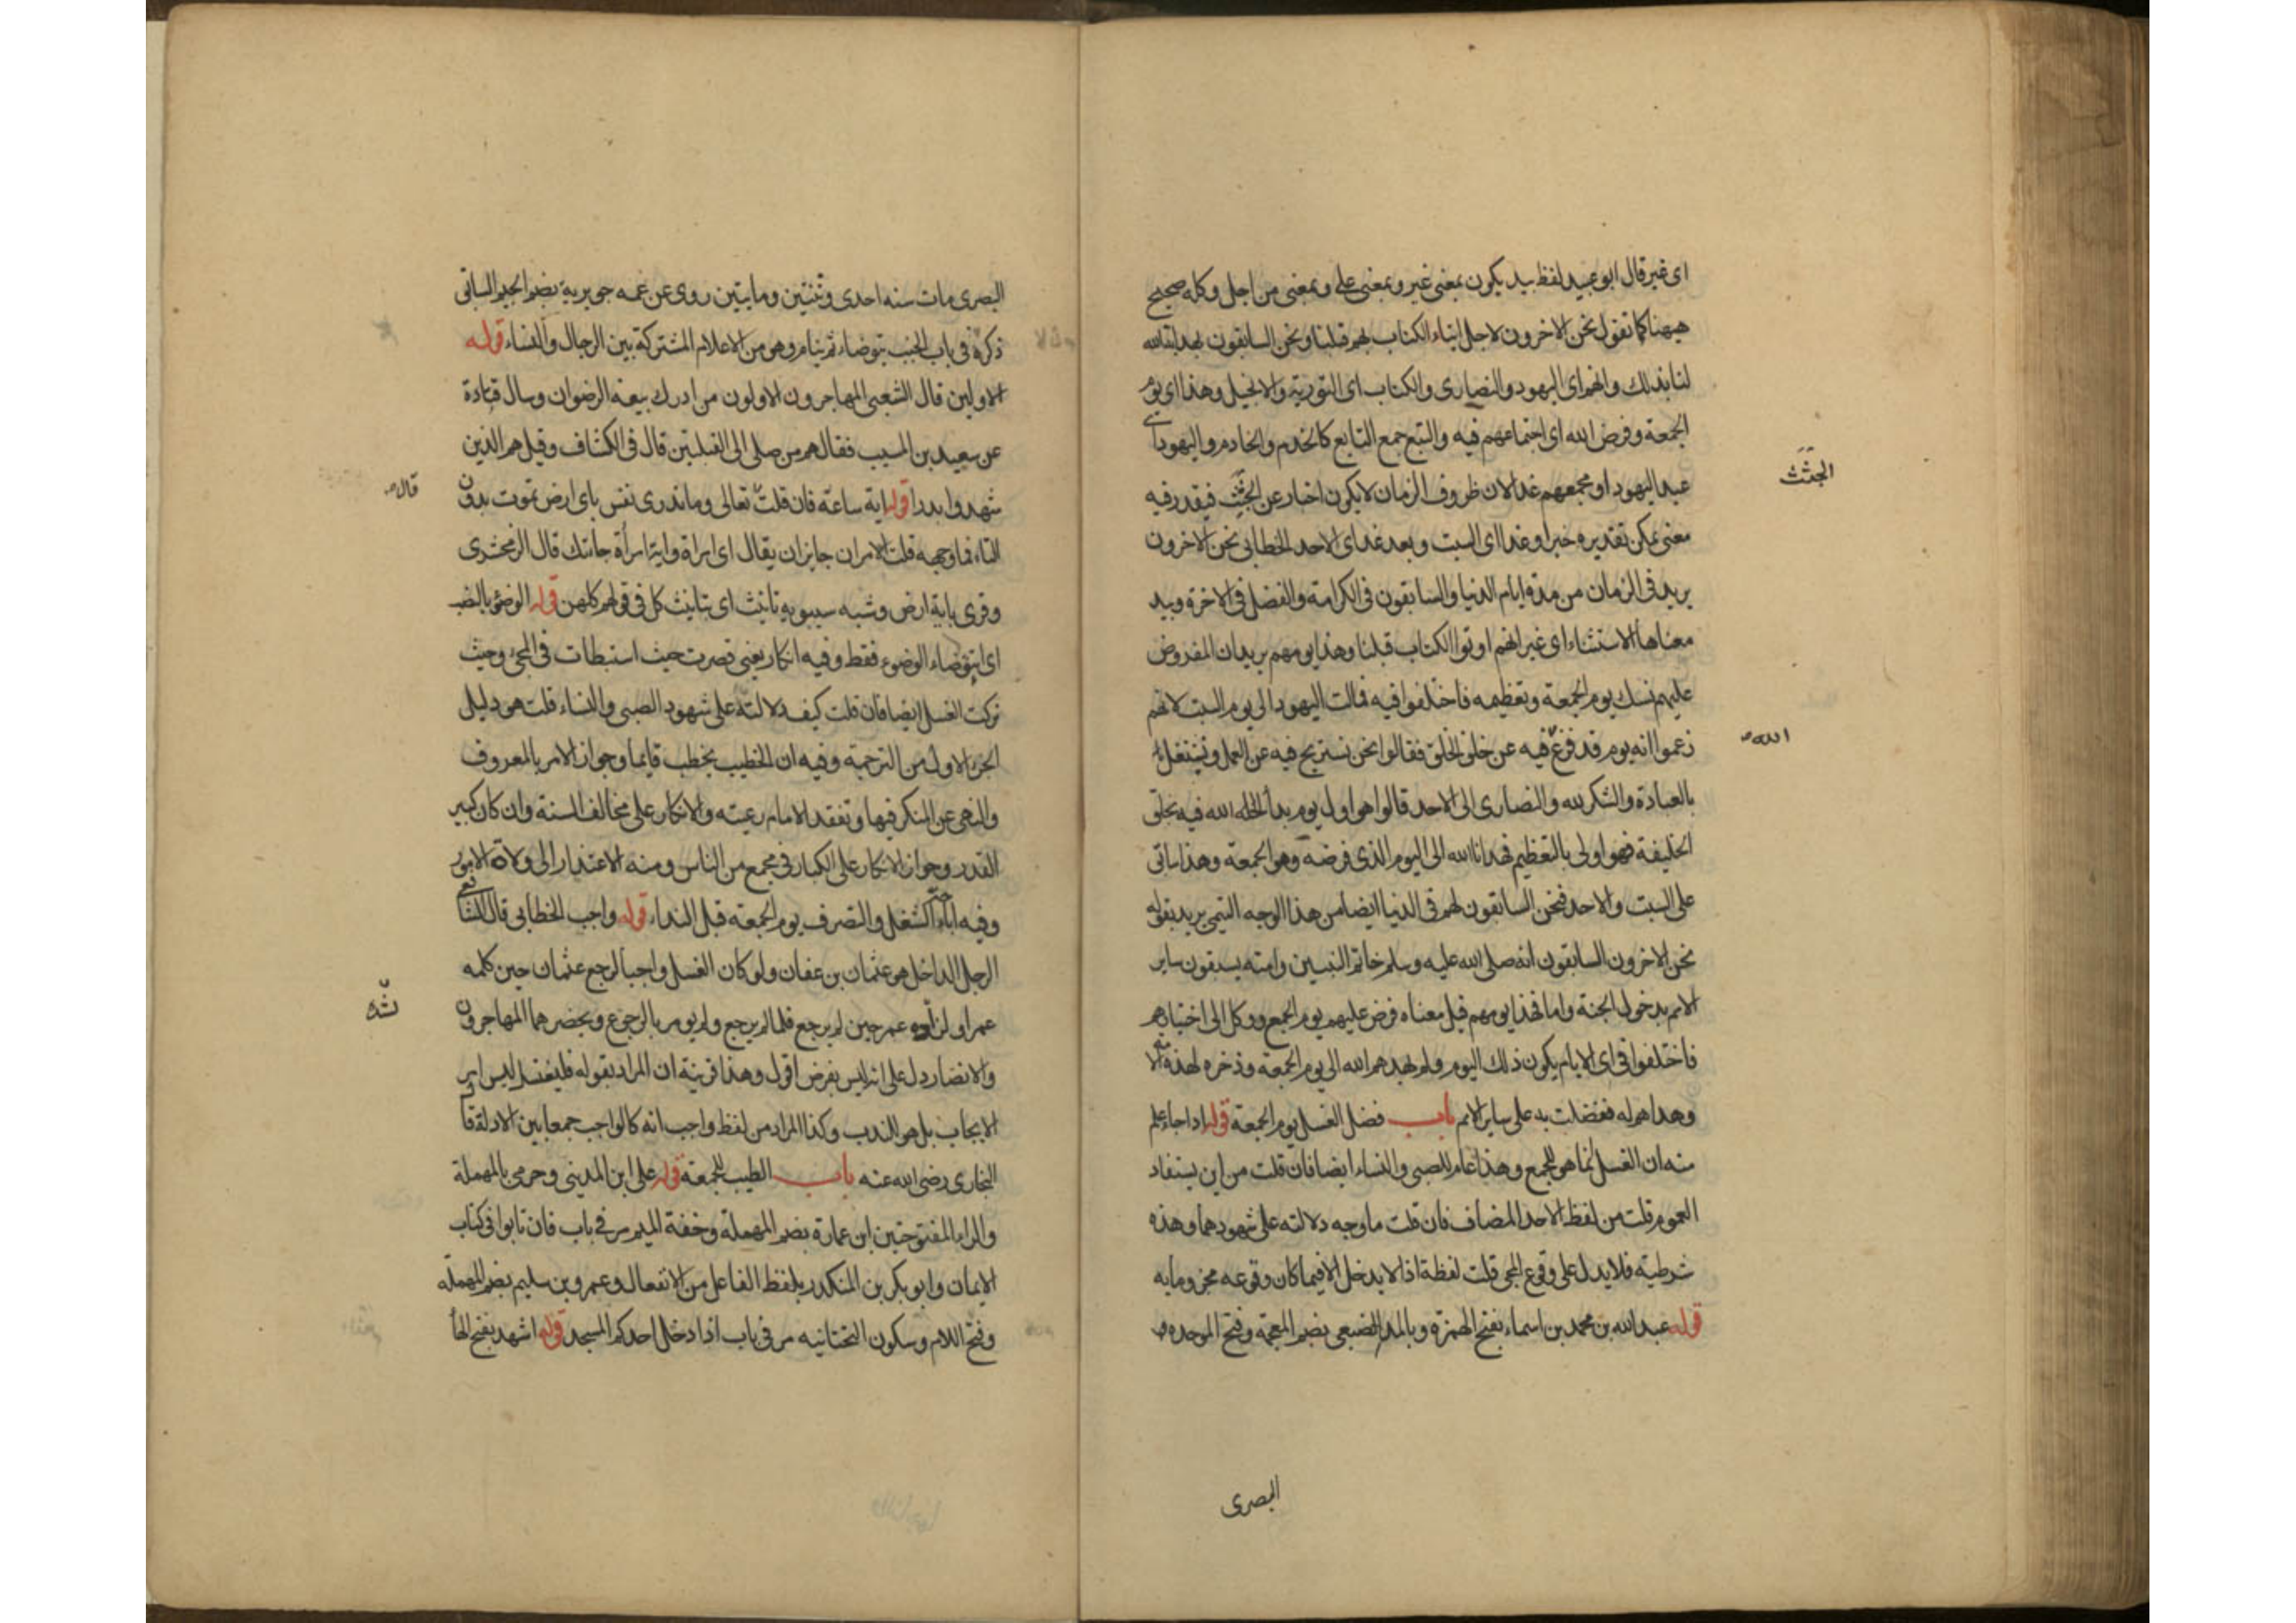 اى غير قال ابو عبيد لفظ بيد يكون بمعنى غير وبمعنى على وبمعنى من اجل وكله صحيح
ههنا كما تقول نحن الاخرون لاجل ايتاء الكتاب لهم قبلنا ونحن السابقون لهداية الله
لنا بذلك وانهم اى اليهود والنصارى والكتاب اى التورية والانجيل وهذا اى يوم
الجمعة وفرض الله اى اجتماعهم فيه والتبع جمع التابع كالخدم والخادم واليهود اى
عيد اليهود او مجمعهم غدا لان ظروف الزمان لا يكون اخبار عن الجثث فيقدر فيه
الجثث
معنى يمكن تقديره خبرا وغدا اى السبت وبعد غد اى الاحد الخطابى نحن الاخرون
يريد فى الزمان من مدة ايام الدنيا والسابقون فى الكرامة والفضل فى الاخرة وبيد
معناها الاستثناء اى غير انهم اوتوا الكتاب قبلنا وهذا يومهم يريد ان المفروض
عليهم نسك يوم الجمعة وتعظيمه فاختلفوا فيه فمالت اليهود الى يوم السبت لانهم
زعموا انه يوم قد فرغ فيه عن خلق الخلق فقالوا نحن نستريح فيه عن العمل ونشتغل
الله
بالعبادة والشكر لله والنصارى الى الاحد قالوا هو اول يوم بدأ الله فيه بخلق
الخليفة فهو اولى بالتعظيم فهدانا الله الى اليوم الذى فرضه وهو الجمعة وهذا سابق
على السبت والاحد فنحن السابقون لهم فى الدنيا ايضا من هذا الوجه التيمى يريد بقوله
نحن الاخرون السابقون انه صلى الله عليه وسلم خاتم النبيين وامته يسبقون ساير
الامم بدخول الجنة واما فهذا يومهم قيل معناه فرض عليهم يوم الجمع ووكل الى اختيارهم
فاختلفوا فى اى الايام يكون ذلك اليوم ولم يهدهم الله الى يوم الجمعة وذخره لهذه الامة
وهداهم له ففضلت به على ساير الامم باب فضل الغسل يوم الجمعة قوله اذا جاء علم
منه ان الغسل انما هو للجمع وهذا عام للصبى والنساء ايضا فان قلت من اين يستفاد
العموم قلت من لفظ الاحد المضاف فان قلت ما وجه دلالته على شهودهما وهذه
شرطية فلا يدل على وقوع المجى قلت لفظة اذا لا يدخل الا فيما كان وقوعه مجزوما به
قوله عبد الله بن محمد بن اسماء بفتح الهمزة وبالمد الضبعى بضم المعجمة وفتح الموحدة
البصرى
البصرى مات سنه احدى وثلثين ومايتين روى عن عمه جويرية بضم الجيم السابق
ذكره فى باب الجنب يتوضاء ثم ينام وهو من الاعلام المشتركة بين الرجال والنساء قوله
الاولين قال الشعبى المهاجرون الاولون من ادرك بيعة الرضوان وسال قتادة
عن سعيد بن المسيب فقال هم من صلى الى القبلتين قال فى الكشاف وقيل هم الذين
شهدوا بدرا قوله اية ساعة فان قلت تعالى وما تدرى نفس باى ارض تموت بدون
قال
التاء فما وجهه قلت الامران جايزان يقال اى امراة واية امرأة جاءتك قال الزمخشرى
وقرى باية ارض وشبه سيبويه تانيث اى بتانيث كل فى قولهم كلهن قوله الوضؤ بالنصب
اى اتتوضاء الوضوء فقط وفيه انكار يعنى قصرت حيث استبطات فى المجئ وحيث
تركت الغسل ايضا فان قلت كيف دلالته على شهود الصبى والنساء قلت هو دليل
الجزء الاول من الترجمة وفيه ان الخطيب يخطب قايما وجواز الامر بالمعروف
والنهى عن المنكر فيها وتفقد الامام رعيته والانكار على مخالف السنة وان كان كبير
القدر وجواز الانكار على الكبار فى مجمع من الناس ومنه الاعتذار الى ولاة الامور
وفيه اباحة الشغل والتصرف يوم الجمعة قبل النداء قوله واجب الخطابى قال الشافعى
الرجل الداخل هو عثمان بن عفان ولو كان الغسل واجبا لرجع عثمان حين كلمه
عمر او لرده عمر حين لم يرجع فلما لم يرجع ولم يومر بالرجوع ويحضرهما المهاجرون
والانصار دل على انه ليس بفرض اقول وهذا قرينة ان المراد بقوله فليغتسل ليس امر
الايجاب بل هو للندب وكذا المراد من لفظ واجب انه كالواجب جمعا بين الادلة قال
البخارى رضى الله عنه باب الطيب للجمعة قوله على ابن المدينى وحرمى بالمهملة
والراء المفتوحتين ابن عمارة بضم المهملة وخفة الميم مر فى باب فان تابوا فى كتاب
الايمان وابو بكر بن المنكدر بلفظ الفاعل من الانفعال وعمرو بن سليم بضم المهملة
وفتح اللام وسكون التحتانيه مر فى باب اذا دخل احدكم المسجد قوله اشهد بفتح الها